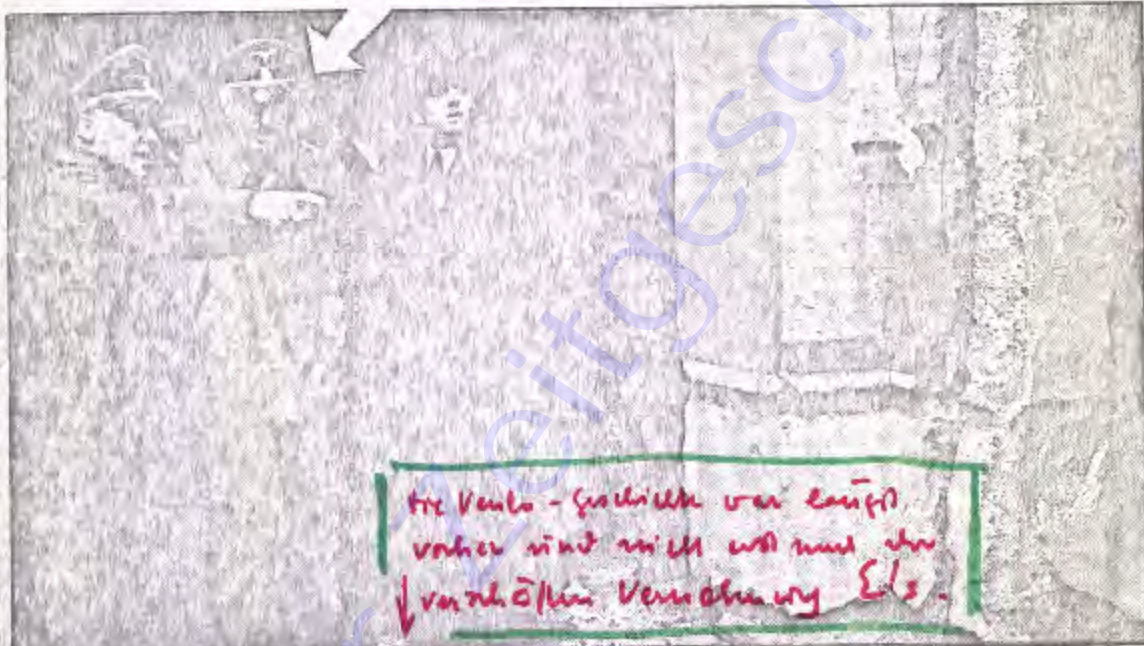 Zeitgesc
die Venlo-Geschichte war längst
vorher und nicht erst nach der
verschärften Vernehmung E's.